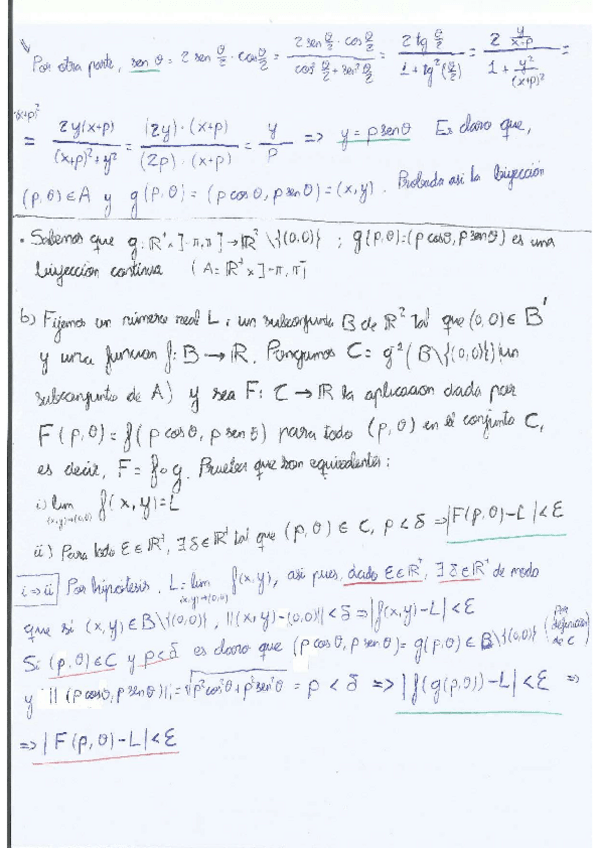 Por otra parte, sen θ = 2 sen θ/2 · cos θ/2 = (2 sen θ/2 · cos θ/2)/(cos² θ/2 + sen² θ/2) = (2 tg θ/2)/(1 + tg²(θ/2)) = (2 y/(x+ρ))/(1 + y²/(x+ρ)²) =
= (2y(x+ρ))/((x+ρ)²+y²) = ((2y)·(x+ρ))/((2ρ)·(x+ρ)) = y/ρ => y = ρ sen θ Es claro que,
(ρ, θ) ∈ A y g(ρ, θ) = (ρ cos θ, ρ sen θ) = (x, y). Probada así la biyección
• Sabemos que g: ℝ⁺ x ]-π, π] → ℝ² \ {(0,0)} ; g(ρ, θ) = (ρ cos θ, ρ sen θ) es una
biyección continua (A = ℝ⁺ x ]-π, π]
b) Fijemos un número real L, un subconjunto B de ℝ² tal que (0,0) ∈ B'
y una función f: B → ℝ. Pongamos C = g⁻¹(B\{(0,0)}) (un
subconjunto de A) y sea F: C → ℝ la aplicación dada por
F(ρ, θ) = f(ρ cos θ, ρ sen θ) para todo (ρ, θ) en el conjunto C,
es decir, F = f∘g. Pruebes que son equivalentes:
i) lim (x,y)→(0,0) f(x, y) = L
ii) Para todo ε ∈ ℝ⁺, ∃ δ ∈ ℝ⁺ tal que (ρ, θ) ∈ C, ρ < δ => |F(ρ, θ) - L| < ε
i => ii Por hipótesis, L = lim (x,y)→(0,0) f(x, y), así pues, dado ε ∈ ℝ⁺, ∃ δ ∈ ℝ⁺ de modo
que si (x, y) ∈ B\{(0,0)}, ||(x,y) - (0,0)|| < δ => |f(x,y) - L| < ε
Si (ρ, θ) ∈ C y ρ < δ es claro que (ρ cos θ, ρ sen θ) = g(ρ, θ) ∈ B\{(0,0)} (Por definición de C)
y ||(ρ cos θ, ρ sen θ)|| = √ρ² cos² θ + ρ² sen² θ = ρ < δ => |f(g(ρ, θ)) - L| < ε =>
=> |F(ρ, θ) - L| < ε